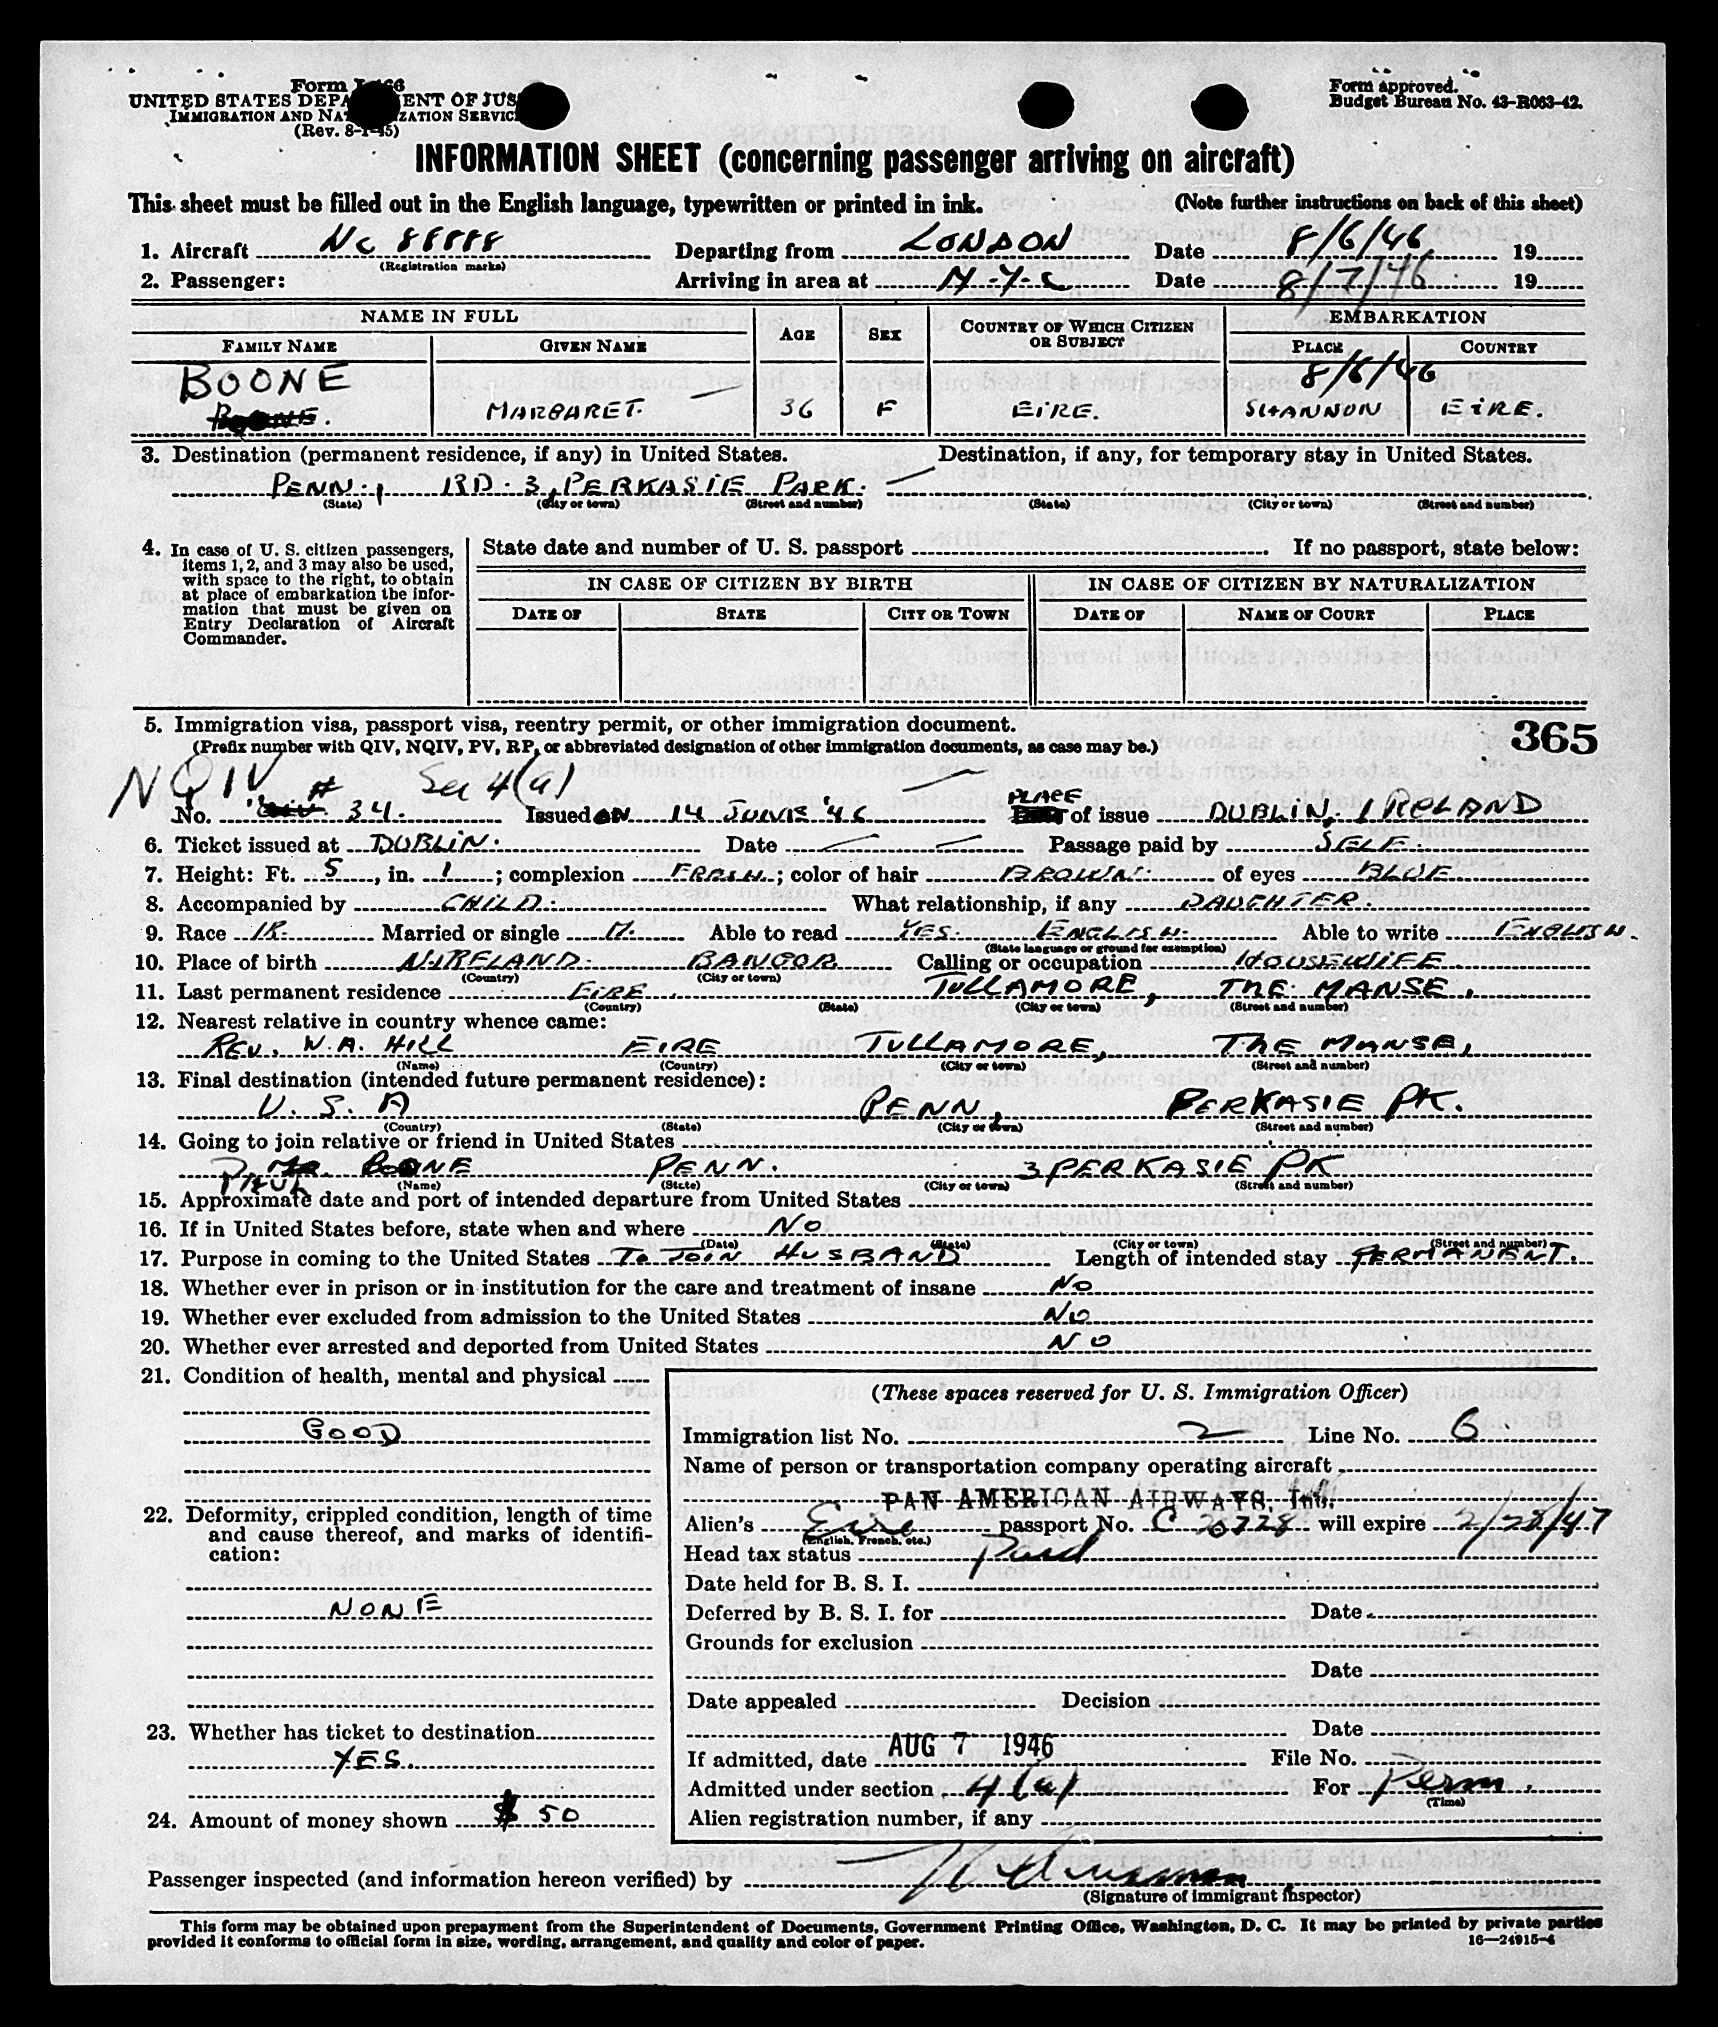 Form I-466
UNITED STATES DEPARTMENT OF JUSTICE
IMMIGRATION AND NATURALIZATION SERVICE
(Rev. 8-1-45)
Form approved.
Budget Bureau No. 43-R063-42.
INFORMATION SHEET (concerning passenger arriving on aircraft)
This sheet must be filled out in the English language, typewritten or printed in ink. (Note further instructions on back of this sheet)
1. Aircraft NC 88888 Departing from LONDON Date 8/6/46 19
(Registration marks)
2. Passenger: Arriving in area at N-Y-C Date 8/7/46 19
NAME IN FULL AGE SEX COUNTRY OF WHICH CITIZEN OR SUBJECT EMBARKATION
FAMILY NAME GIVEN NAME PLACE COUNTRY
BOONE 8/6/46
MARGARET. 36 F EIRE. SHANNON EIRE.
3. Destination (permanent residence, if any) in United States. Destination, if any, for temporary stay in United States.
PENN., RD. 3, PERKASIE PARK.
(State) (City or town) (Street and number) (State) (City or town) (Street and number)
4. In case of U. S. citizen passengers, items 1, 2, and 3 may also be used, with space to the right, to obtain at place of embarkation the information that must be given on Entry Declaration of Aircraft Commander.
State date and number of U. S. passport . If no passport, state below:
IN CASE OF CITIZEN BY BIRTH IN CASE OF CITIZEN BY NATURALIZATION
DATE OF STATE CITY OR TOWN DATE OF NAME OF COURT PLACE
5. Immigration visa, passport visa, reentry permit, or other immigration document. 365
(Prefix number with QIV, NQIV, PV, RP, or abbreviated designation of other immigration documents, as case may be.)
NQIV # Sec 4(a)
No. 34. Issued ON 14 JUNE '46 PLACE of issue DUBLIN, IRELAND
6. Ticket issued at DUBLIN. Date Passage paid by SELF.
7. Height: Ft. 5, in. 1; complexion FRESH; color of hair BROWN. of eyes BLUE.
8. Accompanied by CHILD. What relationship, if any DAUGHTER.
9. Race IR. Married or single M. Able to read YES. ENGLISH. Able to write ENGLISH.
(State language or ground for exemption)
10. Place of birth N. IRELAND. BANGOR Calling or occupation HOUSEWIFE.
(Country) (City or town)
11. Last permanent residence EIRE. TULLAMORE, THE MANSE.
(Country) (State) (City or town) (Street and number)
12. Nearest relative in country whence came:
REV. W.A. HILL EIRE TULLAMORE, THE MANSE,
(Name) (Country) (City or town) (Street and number)
13. Final destination (intended future permanent residence):
U. S. A PENN, PERKASIE PK.
(Country) (State) (City or town) (Street and number)
14. Going to join relative or friend in United States
MR. BOONE PENN. 3 PERKASIE PK
(Name) (State) (City or town) (Street and number)
15. Approximate date and port of intended departure from United States
16. If in United States before, state when and where NO
(Date) (State) (City or town) (Street and number)
17. Purpose in coming to the United States TO JOIN HUSBAND Length of intended stay PERMANENT.
18. Whether ever in prison or in institution for the care and treatment of insane NO
19. Whether ever excluded from admission to the United States NO
20. Whether ever arrested and deported from United States NO
21. Condition of health, mental and physical
GOOD
22. Deformity, crippled condition, length of time and cause thereof, and marks of identification:
NONE
23. Whether has ticket to destination
YES.
24. Amount of money shown $ 50
(These spaces reserved for U. S. Immigration Officer)
Immigration list No. 2 Line No. 6
Name of person or transportation company operating aircraft
PAN AMERICAN AIRWAYS, Inc.
Alien's Eire passport No. C 20728 will expire 2/28/47
(English, French, etc.)
Head tax status Paid
Date held for B. S. I.
Deferred by B. S. I. for Date
Grounds for exclusion
Date
Date appealed Decision
Date
If admitted, date AUG 7 1946 File No.
Admitted under section 4(a) For Perm.
(Time)
Alien registration number, if any
Passenger inspected (and information hereon verified) by
(Signature of Immigrant Inspector)
This form may be obtained upon prepayment from the Superintendent of Documents, Government Printing Office, Washington, D. C. It may be printed by private parties
provided it conforms to official form in size, wording, arrangement, and quality and color of paper. 16—24915-4